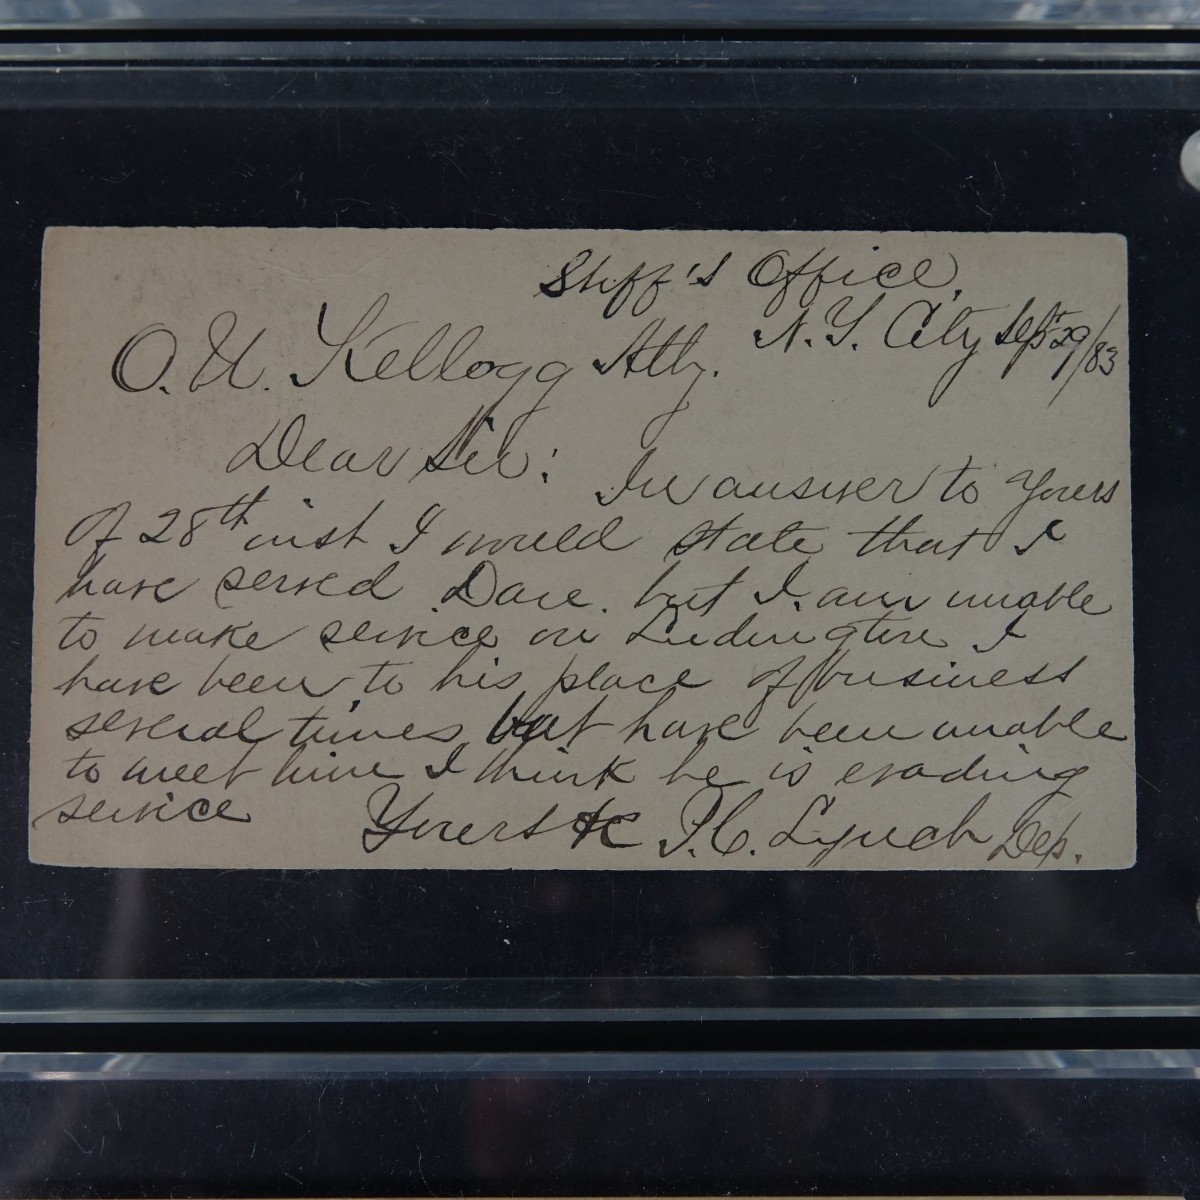 Shff's Office,
N.Y. City Sept 29/83
O. U. Kellogg Atty.
Dear Sir: In answer to Yours
of 28th inst I would state that I
have served Dare. but I am unable
to make service on Ludington I
have been to his place of business
several times but have been unable
to meet him I think he is evading
service Yours &c P.C. Lynch Dep.